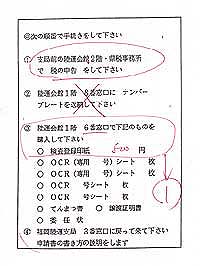 ◎次の順番で手続きをして下さい
① 支局前の陸運会館2階・県税事務所
で 税の申告 をして下さい
② 陸運会館1階 8番窓口に ナンバー
プレートを返納して下さい
③ 陸運会館1階 6番窓口で下記のものを
購入して下さい
○ 検査登録印紙 500 円
○ OCR(専用 号)シート 枚
○ OCR(専用 号)シート 枚
○ OCR 号シート 枚
○ OCR 号シート 枚
○ てんまつ書 ○ 譲渡証明書
○ 委任状
④ 福岡陸運支局 3番窓口に戻って来て下さい
申請書の書き方の説明をします